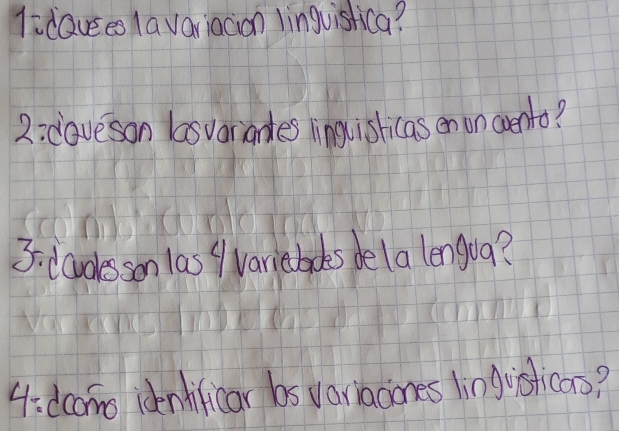 1:¿Que es la variacion linguistica?
2:¿Que son las variantes linguisticas en un cuento?
3:¿Cuales son las 4 variedades de la lengua?
4:¿como identificar las variaciones linguisticas?